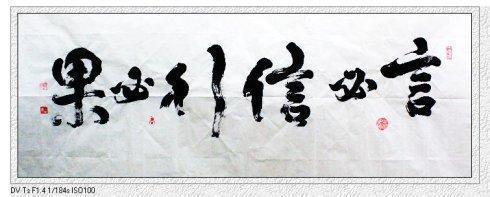 言必信行必果
DV Ts F1.4 1/184s ISO100